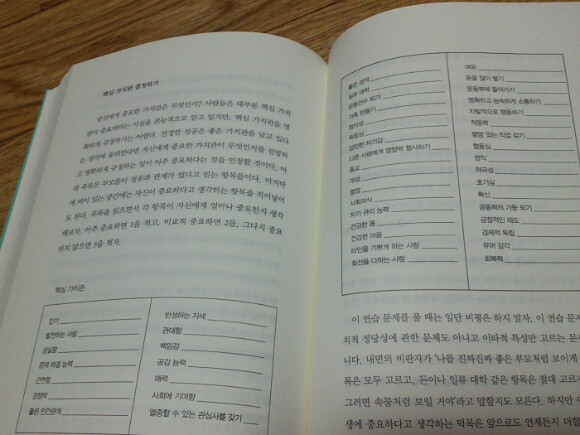 핵심 가치관 결정하기
당신에게 중요한 가치관은 무엇인가? 사람들은 대부분 핵심 가치
관이 중요하다는 사실을 본능적으로 알고 있지만, 핵심 가치관을 명
확하게 규정하기는 어렵다. 진정한 성공은 좋은 가치관을 담고 있다
는 생각에 동의한다면 자신에게 중요한 가치관이 무엇인지를 선명하
고 명확하게 규정하는 일이 아주 중요하다는 것을 인정할 것이다. 아
래 목록은 부모들이 성공과 관계가 있다고 믿는 항목들이다. 마지막
에 비어 있는 줄에는 자신이 중요하다고 생각하는 항목을 적어넣어
도 된다. 목록을 읽으면서 각 항목이 자신에게 얼마나 중요한지 생각
해보자. 아주 중요하면 1을 적고, 비교적 중요하면 2를, 그다지 중요
하지 않으면 3을 적자.
핵심 가치관
인기
발전하는 사람
성실함
문제 해결 능력
근면함
경쟁력
좋은 인간관계
반성하는 자세
관대함
책임감
공감 능력
매력
사회에 기여함
열중할 수 있는 관심사를 갖기
좋은 성적
일류 대학
운동선수 되기
창의성
독창성
강인한 자기감
다른 사람에게 영향력 행사하기
종교
개성
열정
사회의식
자기 관리 능력
건강한 몸
건강한 마음
타인을 기쁘게 하는 사람
최선을 다하는 사람
여유
돈을 많이 벌기
운동부에 들어가기
명확하고 능숙하게 소통하기
자발적으로 행동하기
적응력
명망 있는 직업 갖기
협동심
정직
적극성
호기심
확신
공동체의 기둥 되기
긍정적인 태도
경제적 독립
유머 감각
회복력
이 연습 문제를 풀 때는 일단 비평은 하지 말자. 이 연습 문
치적 정당성에 관한 문제도 아니고 이타적 특성만 고르는 문제
니다. 내면의 비판자가 '나를 진짜진짜 좋은 부모처럼 보이게
목은 모두 고르고, 돈이나 일류 대학 같은 항목은 절대 고르지
그러면 속물처럼 보일 거야'라고 말할지도 모른다. 하지만
생에 중요하다고 생각하는 덕목은 앞으로도 언제든지 더할